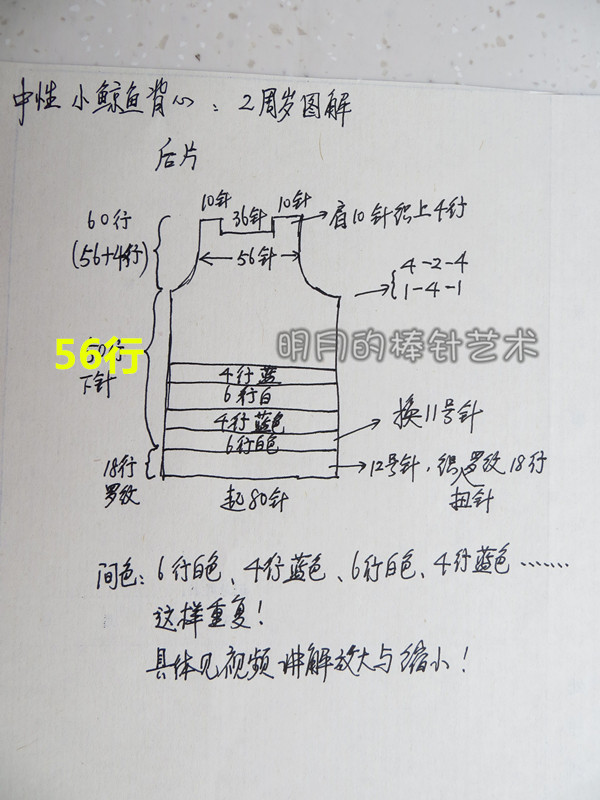 中性 小鲸鱼背心：2周岁图解
后片
10针 36针 10针
肩10针织上4行
60行
(56+4行)
56针
4-2-4
1-4-1
明月的棒针艺术
56行
下针
4行蓝
6行白
4行蓝色
6行白色
换11号针
18行
罗纹
12号针，织罗纹18行
扭针
起80针
间色：6行白色、4行蓝色、6行白色、4行蓝色……
这样重复！
具体见视频讲解放大与缩小！